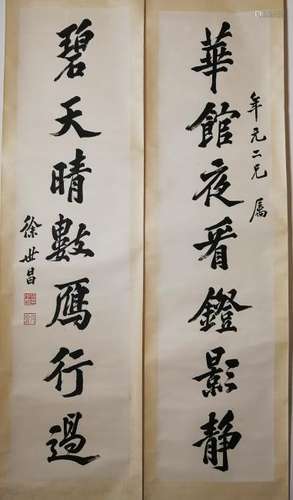 華館夜看鐙影靜
年元二兄屬
碧天晴數鴈行過
徐世昌